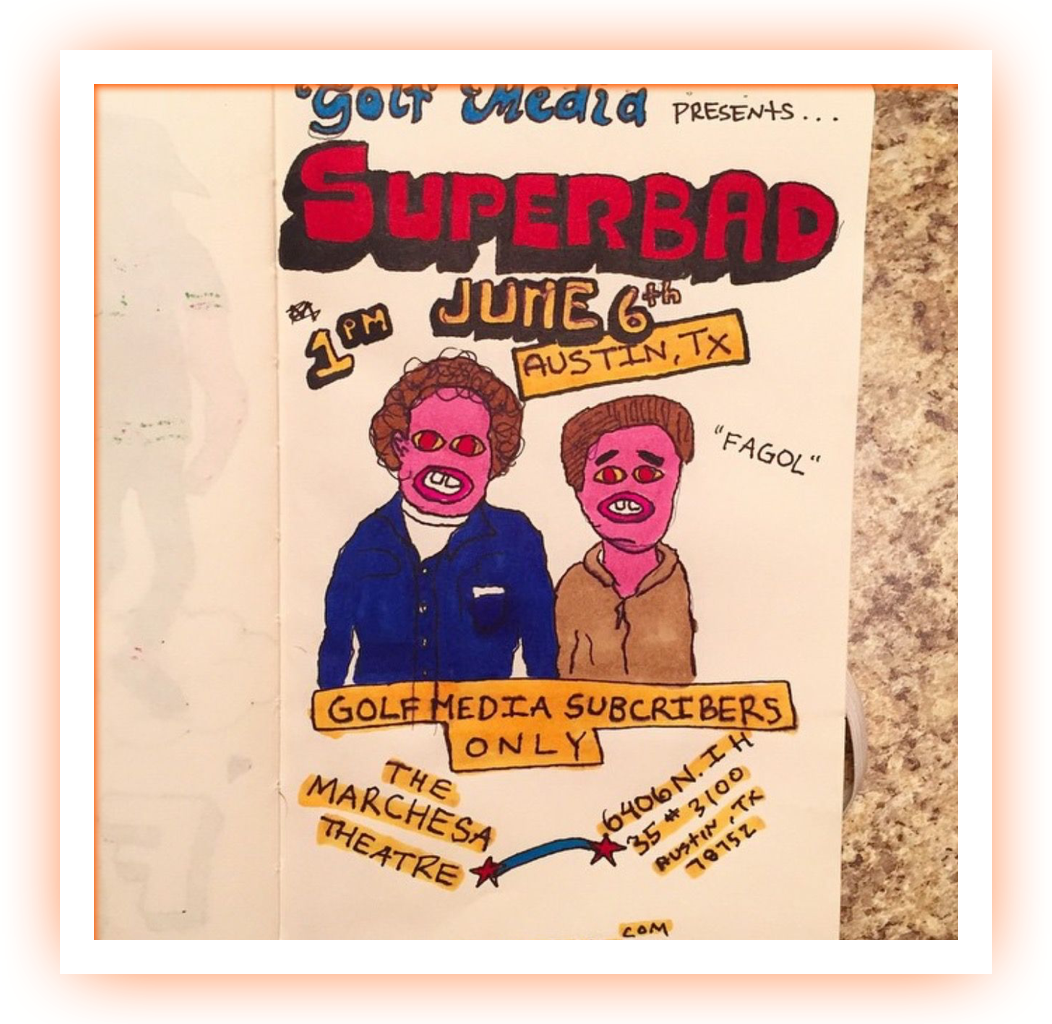 Golf Media PRESENTS...
SUPERBAD
JUNE 6th
1PM
AUSTIN, TX
"FAGOL"
GOLF MEDIA SUBCRIBERS
ONLY
THE
MARCHESA
THEATRE
6406 N. IH
35 # 3100
AUSTIN, TX
78752
COM